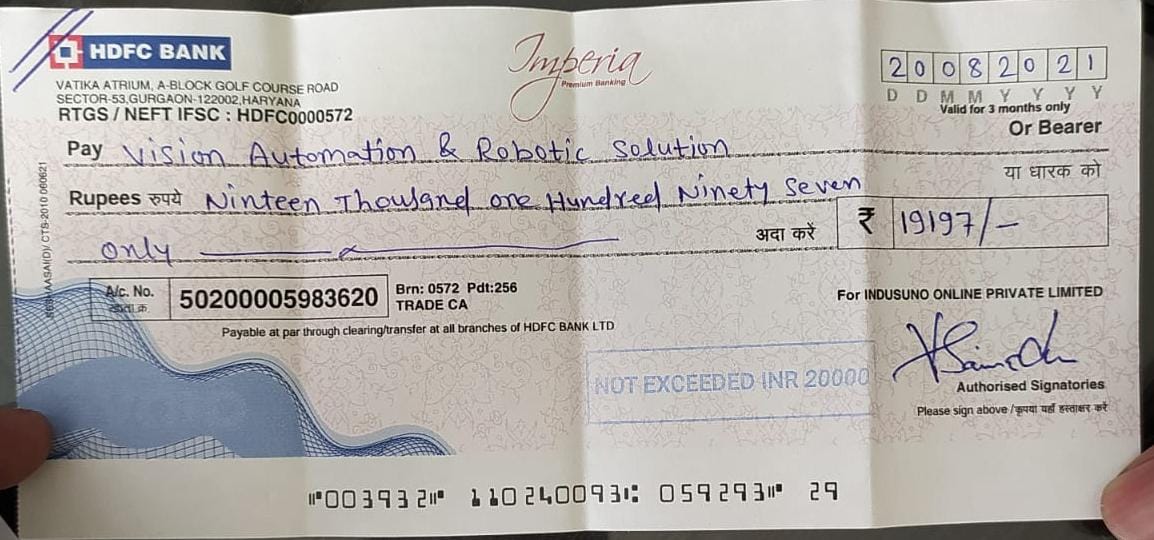 HDFC BANK
Imperia
Premium Banking
VATIKA ATRIUM, A-BLOCK GOLF COURSE ROAD
SECTOR-53,GURGAON-122002,HARYANA
RTGS / NEFT IFSC : HDFC0000572
20082021
D D M M Y Y Y Y
Valid for 3 months only
Pay Vision Automation & Robotic Solution
Or Bearer
या धारक को
Rupees रुपये Ninteen Thousand one Hundred Ninety Seven
only
अदा करें ₹ 19197/-
A/c. No. 50200005983620
Brn: 0572 Pdt:256
TRADE CA
For INDUSUNO ONLINE PRIVATE LIMITED
Payable at par through clearing/transfer at all branches of HDFC BANK LTD
NOT EXCEEDED INR 20000
Authorised Signatories
Please sign above /कृपया यहाँ हस्ताक्षर करें
⑈003932⑈ 110240093⑆ 059293⑈ 29